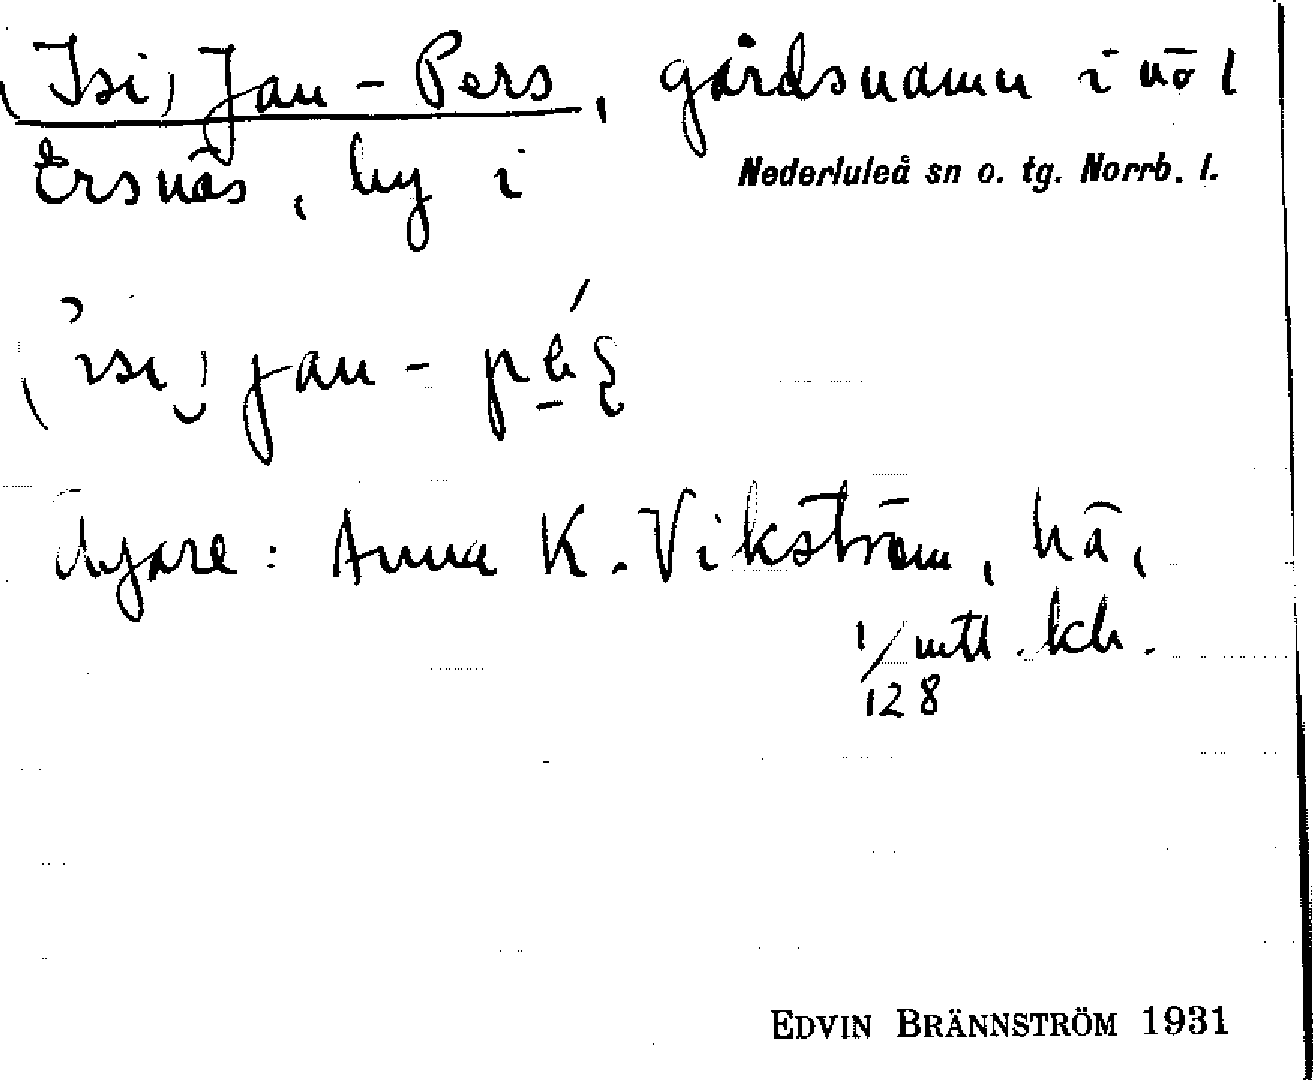 (Isi) Jan-Pers, gårdsnamn i nö l
Ersnäs, by i Nederluleå sn o. tg. Norrb. l.
Ägare: Anna K. Vikström, hä,
1/128 mtl. kh.
EDVIN BRÄNNSTRÖM 1931